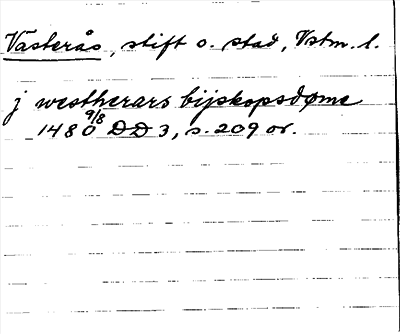 Västerås, stift o. stad, Vstm. l.
j westherars bijskopsdøme
1480 9/8 DD 3, s. 209 or.